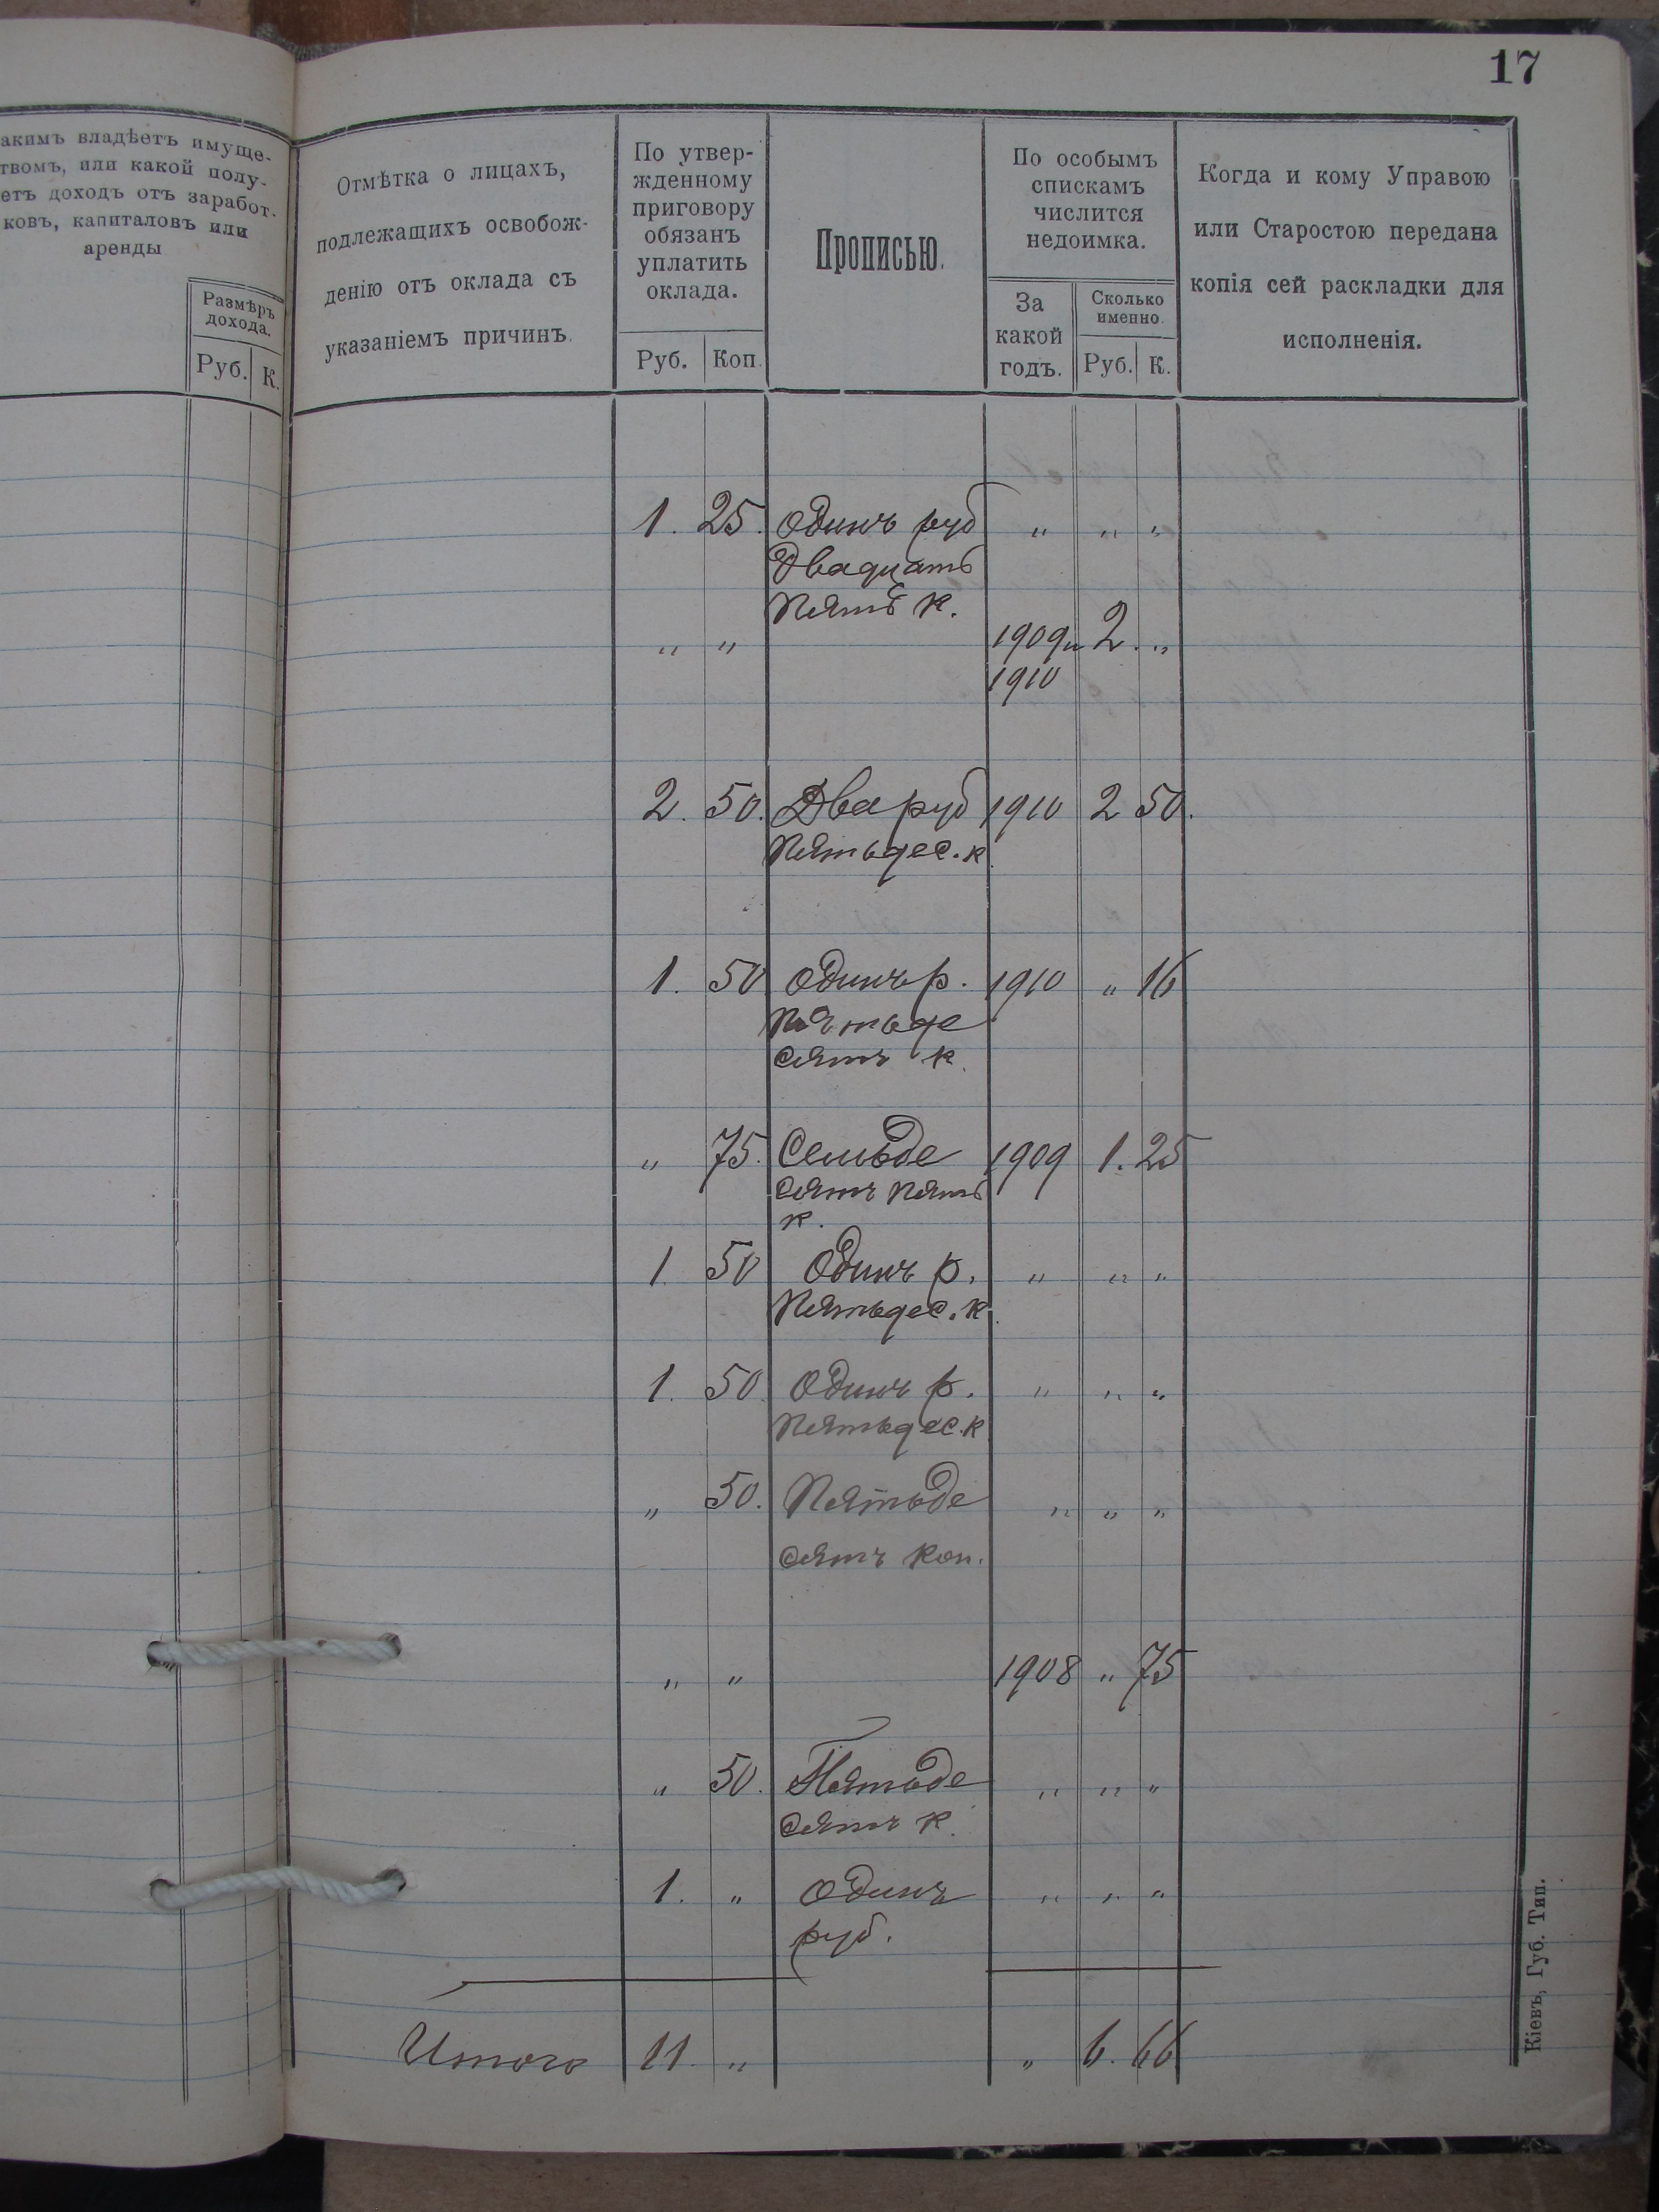 17
акимъ владѣетъ имуще-
твомъ, или какой полу-
етъ доходъ отъ заработ-
ковъ, капиталовъ или
аренды
Размѣръ
дохода.
Руб. К.
Отмѣтка о лицахъ,
подлежащихъ освобож-
денію отъ оклада съ
указаніемъ причинъ.
По утвер-
жденному
приговору
обязанъ
уплатить
оклада.
Руб. Коп.
Прописью.
По особымъ
спискамъ
числится
недоимка.
За
какой
годъ.
Сколько
именно.
Руб. К.
Когда и кому Управою
или Старостою передана
копія сей раскладки для
исполненія.
1. 25. Одинъ руб " " "
Двадцать
Пять к.
" " 1909 и 2. "
1910
2. 50. Два руб 1910 2 50.
Пятьдес. к.
1. 50 Одинъ р. 1910 " 16
Пятьде
сятъ к.
" 75. Семьде 1909 1. 25
сятъ пять
к.
1. 50 Одинъ р. " " "
Пятьдес. к.
1. 50 Одинъ р. " " "
Пятьдес. к
" 50. Пятьде " " "
сятъ коп.
" " 1908 " 75
" 50. Пятьде " " "
сятъ к.
1. " Одинъ " " "
руб.
Итого 11. " " 6. 66
Кіевъ, Губ. Тип.